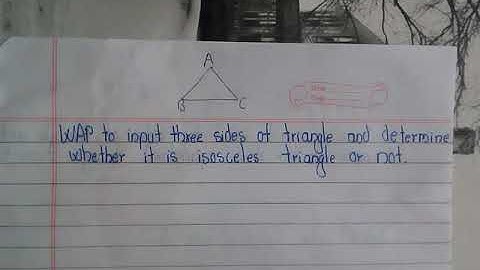 A
B C
WAP to input three sides of triangle and determine
whether it is isosceles triangle or not.